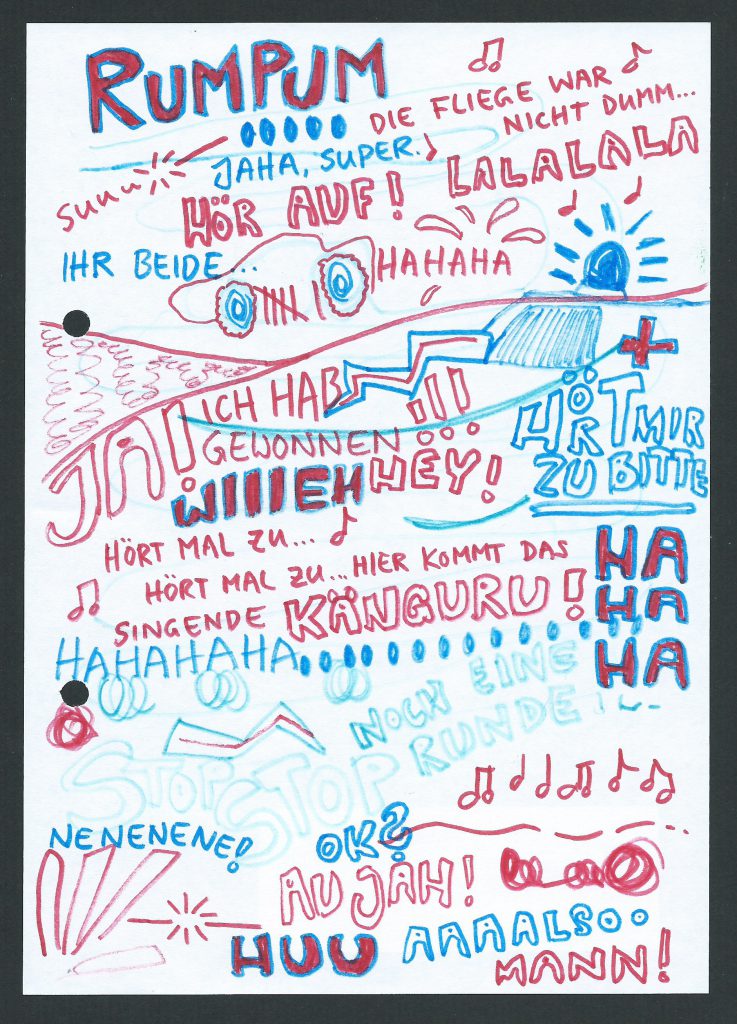 RUMPUM
DIE FLIEGE WAR
NICHT DUMM...
JAHA, SUPER.
suuu
LALALALA
HÖR AUF!
IHR BEIDE...
HAHAHA
JA!
ICH HAB
GEWONNEN!!!
HÖRT MIR
ZU BITTE
WIIIEH
HEY!
HÖRT MAL ZU...
HÖRT MAL ZU...HIER KOMMT DAS
SINGENDE KÄNGURU!
HA
HA
HA
HAHAHAHA
NOCH EINE
RUNDE
STOP STOP
NENENENE!
OK?
AU JAH!
HUU
AAAALSOO
MANN!